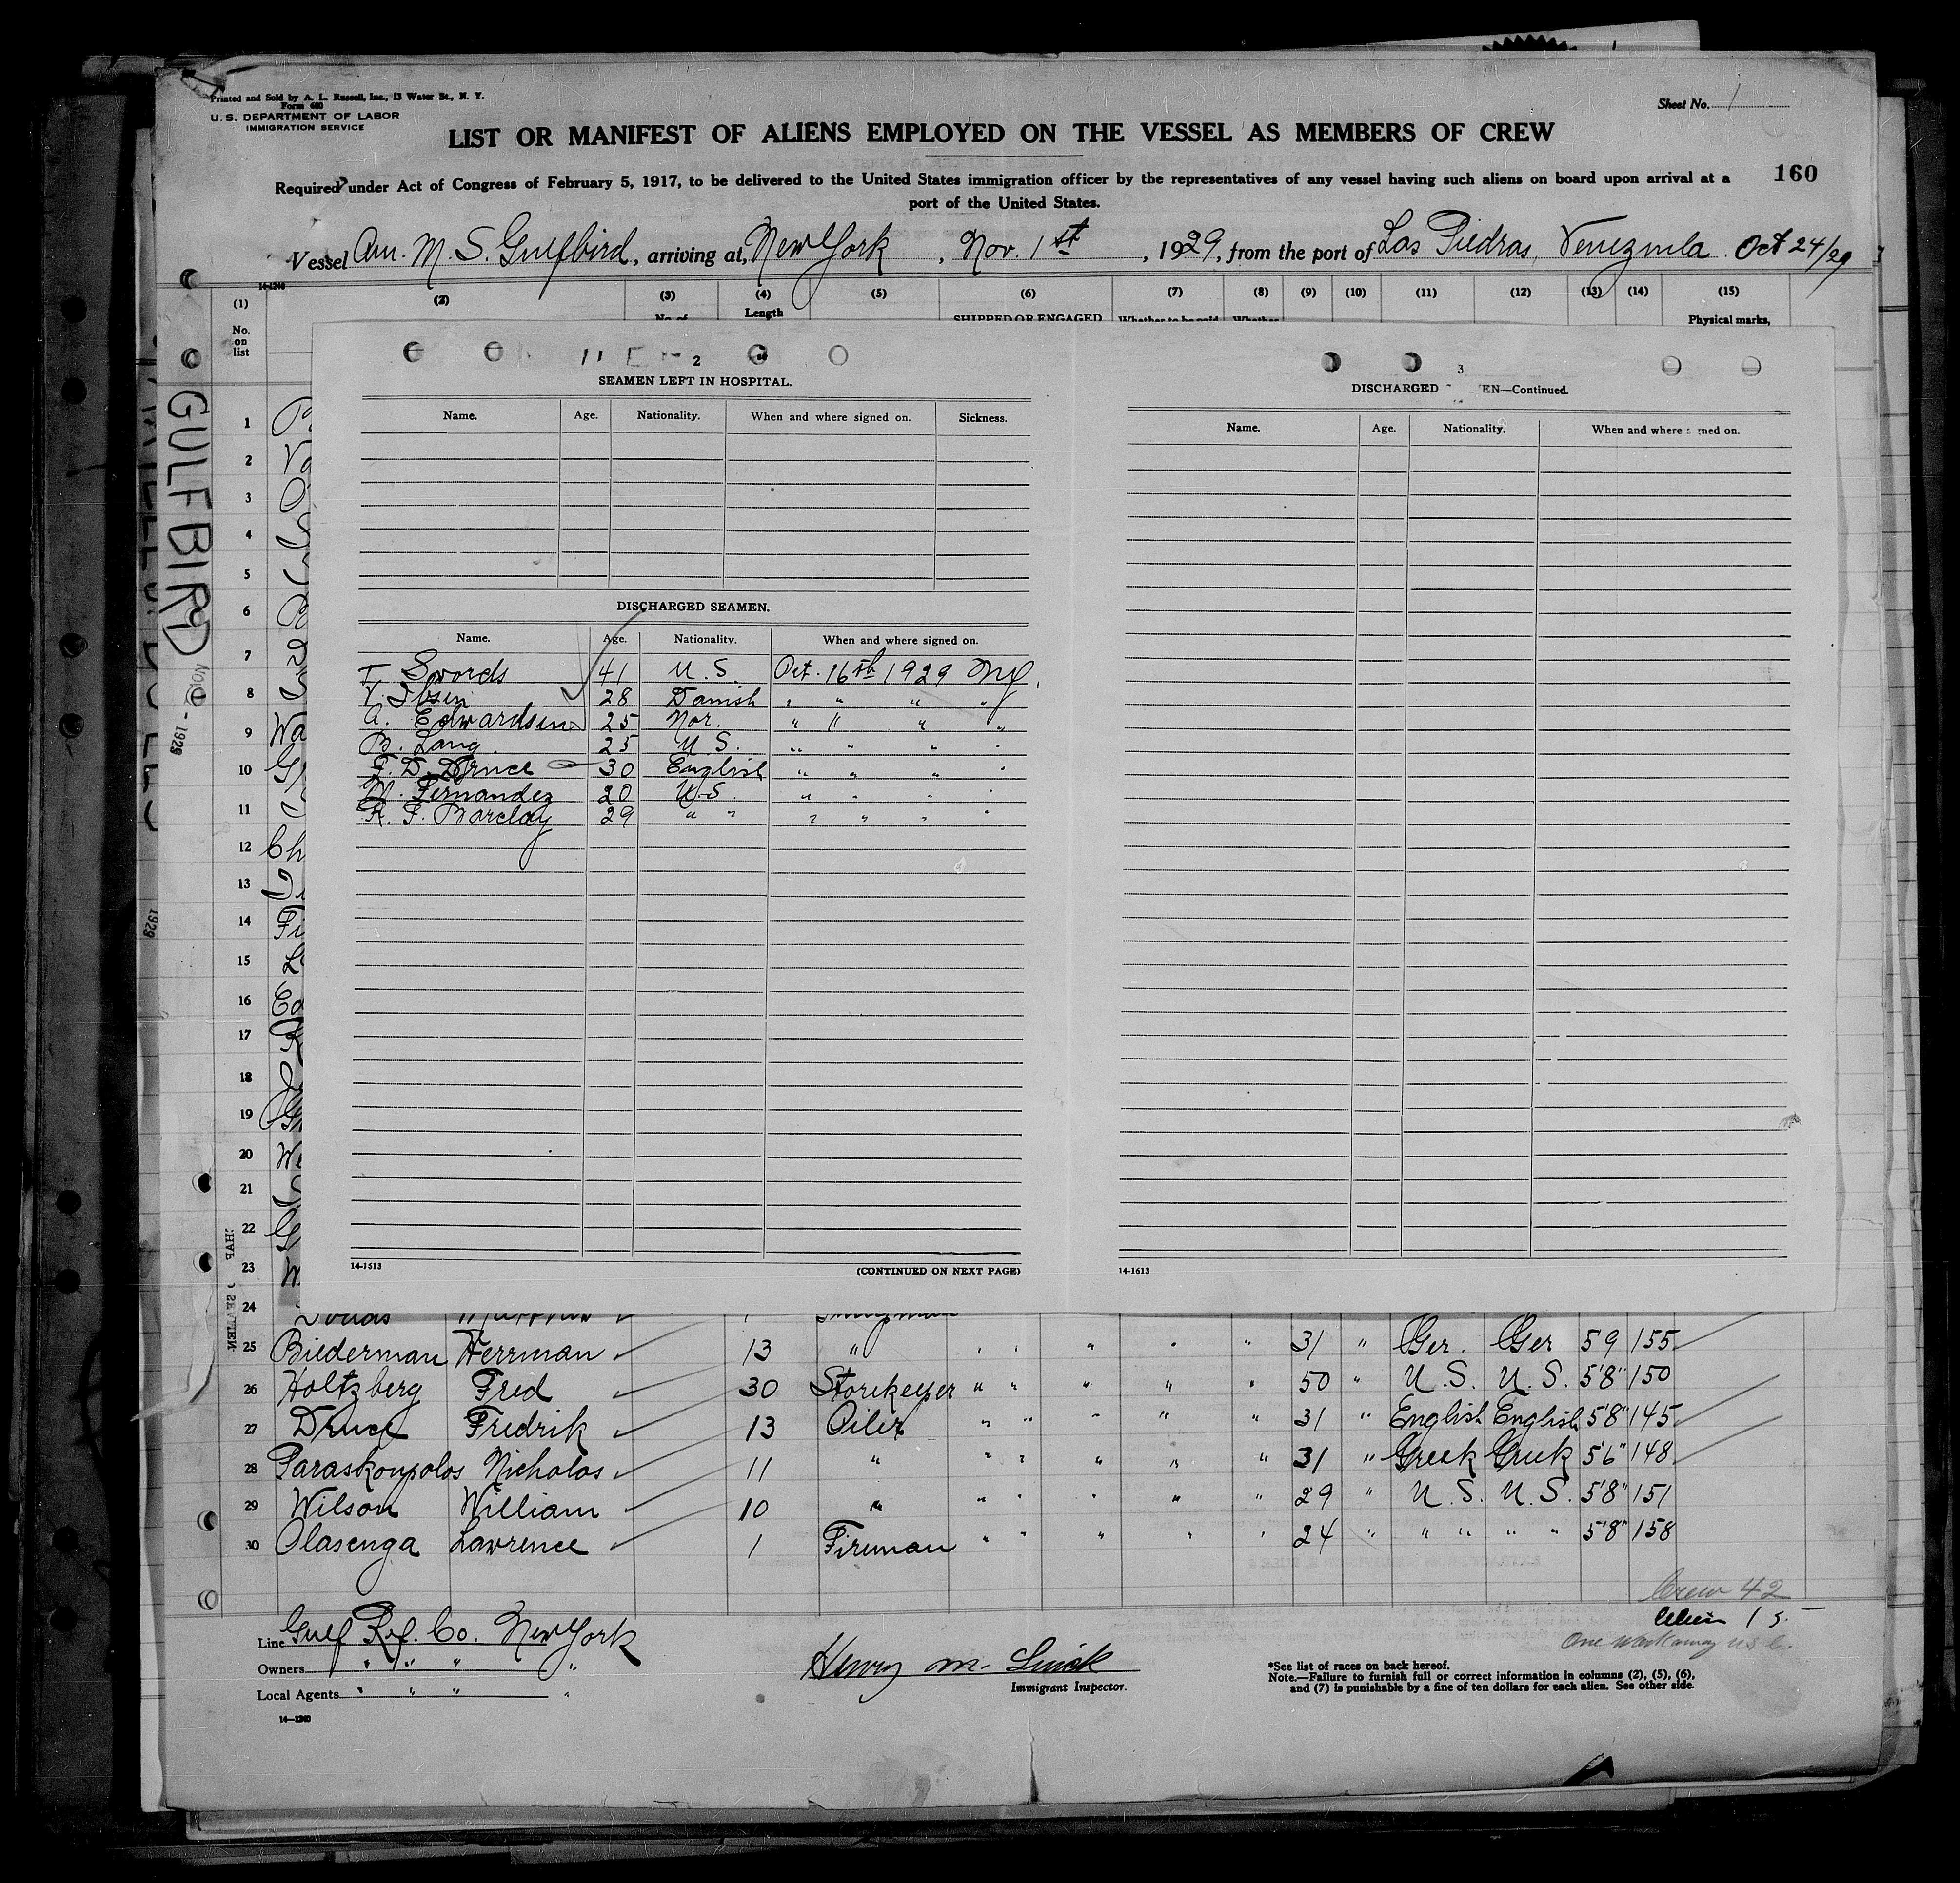 Printed and Sold by A. L. Russell, Inc., 13 Water St., N. Y.
Form 680
U. S. DEPARTMENT OF LABOR
IMMIGRATION SERVICE
Sheet No. 1
LIST OR MANIFEST OF ALIENS EMPLOYED ON THE VESSEL AS MEMBERS OF CREW
160
Required under Act of Congress of February 5, 1917, to be delivered to the United States immigration officer by the representatives of any vessel having such aliens on board upon arrival at a
port of the United States.
Vessel Am. M. S. Gulfbird, arriving at, New York, Nov. 1st, 1929, from the port of Las Piedras, Venezuela. Oct 24/29
14-1240
(1) (2) (3) (4) (5) (6) (7) (8) (9) (10) (11) (12) (13) (14) (15)
No. on list
No. of
Length
SHIPPED OR ENGAGED
Whether to be paid
Whether
Physical marks,
GULFBIRD
1929
1929
2
SEAMEN LEFT IN HOSPITAL.
Name. Age. Nationality. When and where signed on. Sickness.
DISCHARGED SEAMEN.
Name. Age. Nationality. When and where signed on.
T. Swords 41 U. S. Oct. 16th 1929 NY.
V. Ibsen 28 Danish " " " "
A. Edwardsen 25 Nor. " " " "
B. Lang. 25 U. S. " " " "
F. D. Druce 30 English " " " "
M. Fernandez 20 U.S. " " " "
R. F. Barclay 29 " " " " " "
14-1613
(CONTINUED ON NEXT PAGE)
3
DISCHARGED EN—Continued.
Name. Age. Nationality. When and where ned on.
14-1613
1
2
3
4
5
6
7
8
9 Wa
10
11
12 Ch
13
14 Fi
15
16
17
18
19
20 We
21
22
23
24
25 Biederman Herrman 13 " " " " " " 31 " Ger. Ger 59 155
26 Holtzberg Fred 30 Storekeeper " " " " " 50 " U. S. U. S. 5'8" 150
27 Druce Fredrik 13 Oiler " " " " " 31 " English English 5'8" 145
28 Paraskoupolos Nicholas 11 " " " " " " 31 " Greek Greek 5'6" 148
29 Wilson William 10 " " " " " " 29 " U. S. U. S. 5'8" 151
30 Olasenga Lawrence 1 Fireman " " " " " 24 " " " " " 5'8" 158
Crew 42
Alien 15
One workaway U S C.
Line Gulf Ref. Co. New York
Owners " " " "
Local Agents " " " "
14—1240
Henry M.
Immigrant Inspector.
*See list of races on back hereof.
Note.—Failure to furnish full or correct information in columns (2), (5), (6),
and (7) is punishable by a fine of ten dollars for each alien. See other side.